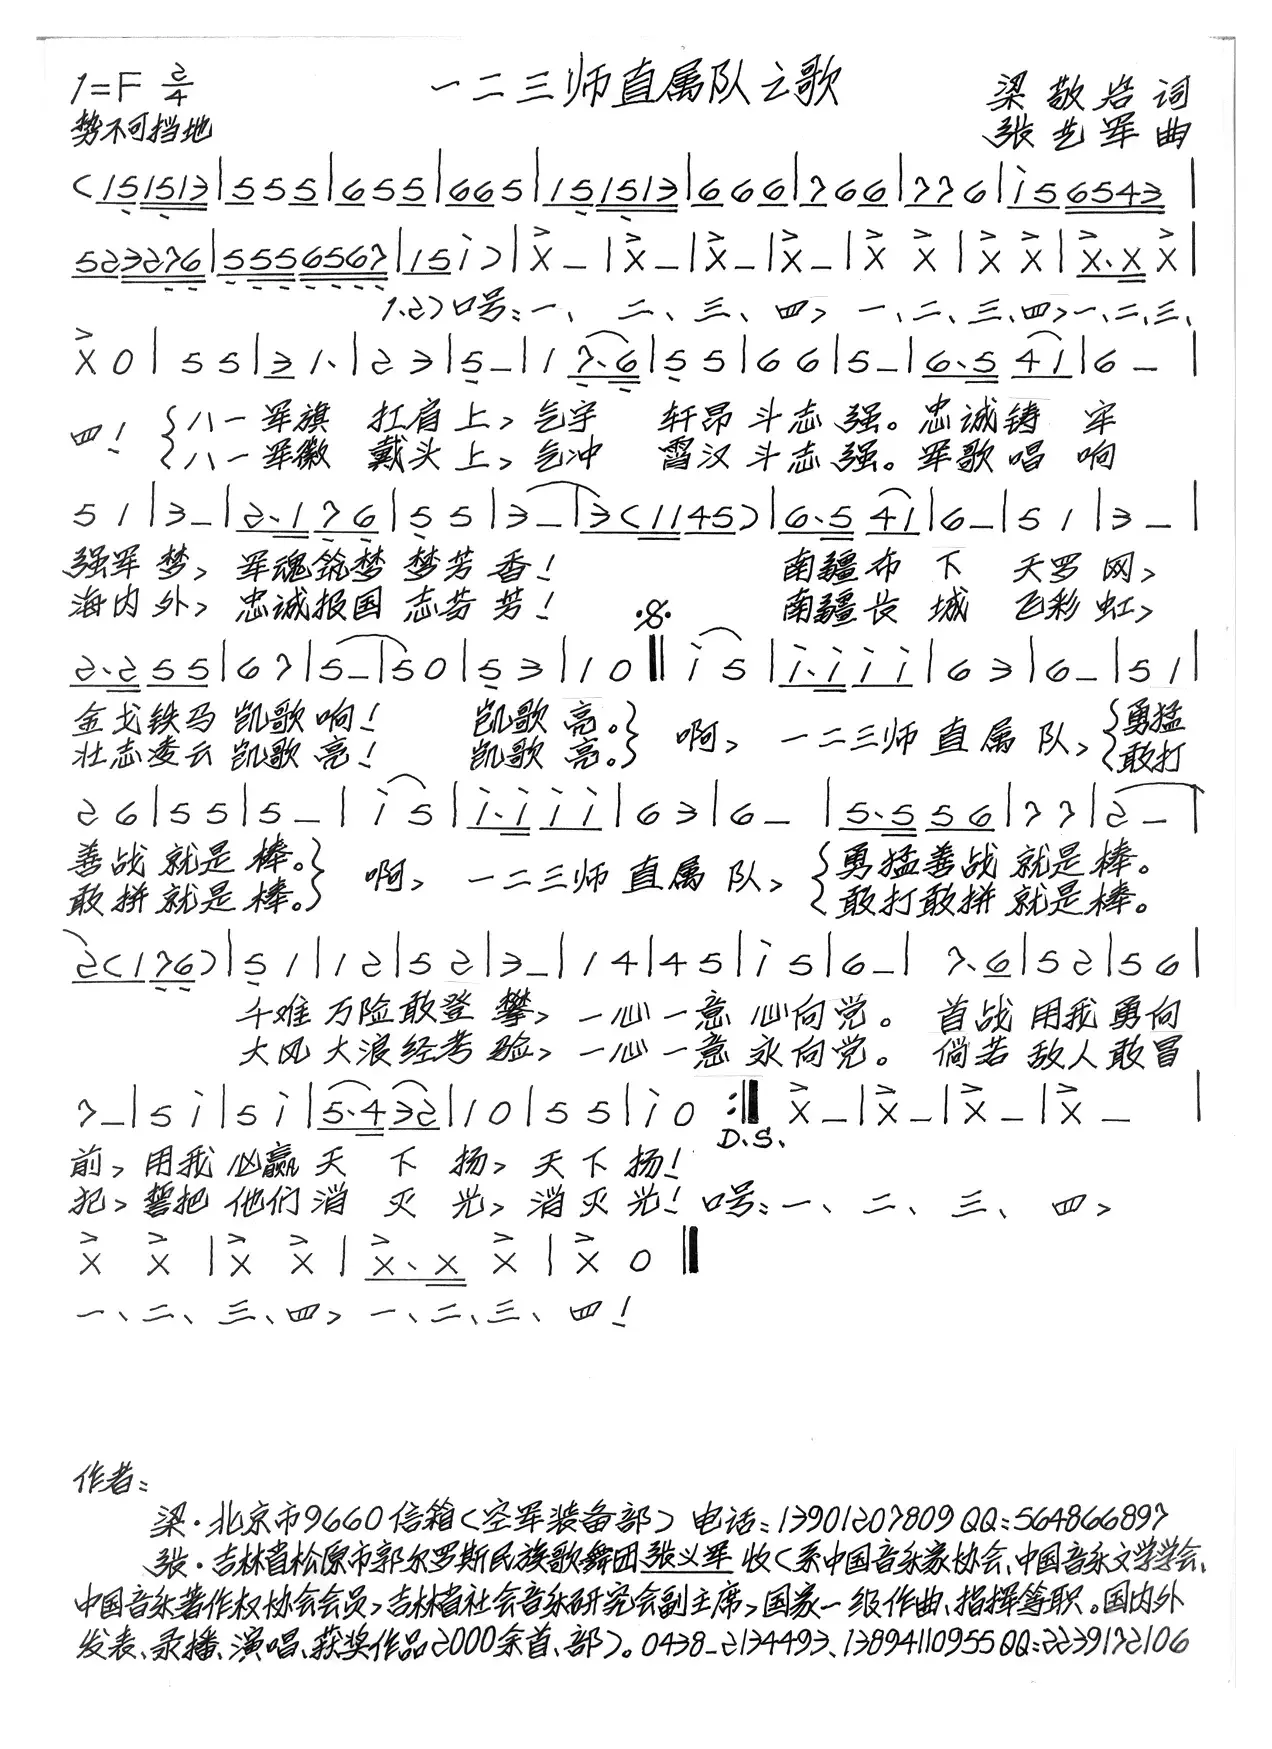 1=F 2/4 一二三师直属队之歌 梁敬岩 词
势不可挡地 张艺军 曲
(151513|555|655|665|151513|666|766|776|i56543|
523276|5556567|15i)|X–|X–|X–|X–|X X|X X|X.X X|
1.2)口号:一、 二、三、四, 一、二、三、四,一、二、三、
X 0|55|31.|23|5–|17.6|55|66|5–|6.5 41|6–|
四! 八一军旗 扛肩上,气宇 轩昂斗志强。忠诚铸 牢
八一军徽 戴头上,气冲 霄汉斗志强。军歌唱 响
51|3–|2.176|55|3–|3(1145)|6.5 41|6–|51|3–|
强军梦, 军魂筑梦 梦芳香! 南疆布 下 天罗网,
海内外, 忠诚报国 志芬芳! 南疆长 城 飞彩虹,
2.255|67|5–|50|53|10‖i5|i.iii|63|6–|51|
金戈铁马 凯歌响! 凯歌亮。 啊, 一二三师直属队, 勇猛
壮志凌云 凯歌亮! 凯歌亮。 敢打
26|55|5–|i5|i.iii|63|6–|5.556|77|2–|
善战就是棒。 啊, 一二三师直属队, 勇猛善战就是棒。
敢拼就是棒。 敢打敢拼就是棒。
2(176)|51|12|52|3–|14|45|i5|6–|7.6|52|56|
千难万险敢登攀, 一心一意心向党。 首战用我勇向
大风大浪经考验, 一心一意永向党。 倘若敌人敢冒
7–|5i|5i|5.432|10|55|i0:‖X–|X–|X–|X–|
D.S.
前,用我必赢天下扬,天下扬!
犯,誓把他们消灭光,消灭光! 口号:一、二、三、四,
X X|X X|X.X X|X 0‖
一、二、三、四, 一、二、三、四!
作者:
梁·北京市9660信箱(空军装备部) 电话:13901207809QQ:564866897
张·吉林省松原市郭尔罗斯民族歌舞团张义军 收(系中国音乐家协会、中国音乐文学学会、
中国音乐著作权协会会员,吉林省社会音乐研究会副主席,国家一级作曲、指挥等职。国内外
发表、录播、演唱、获奖作品2000余首、部)。0438_2134493、13894110955QQ:2239172106